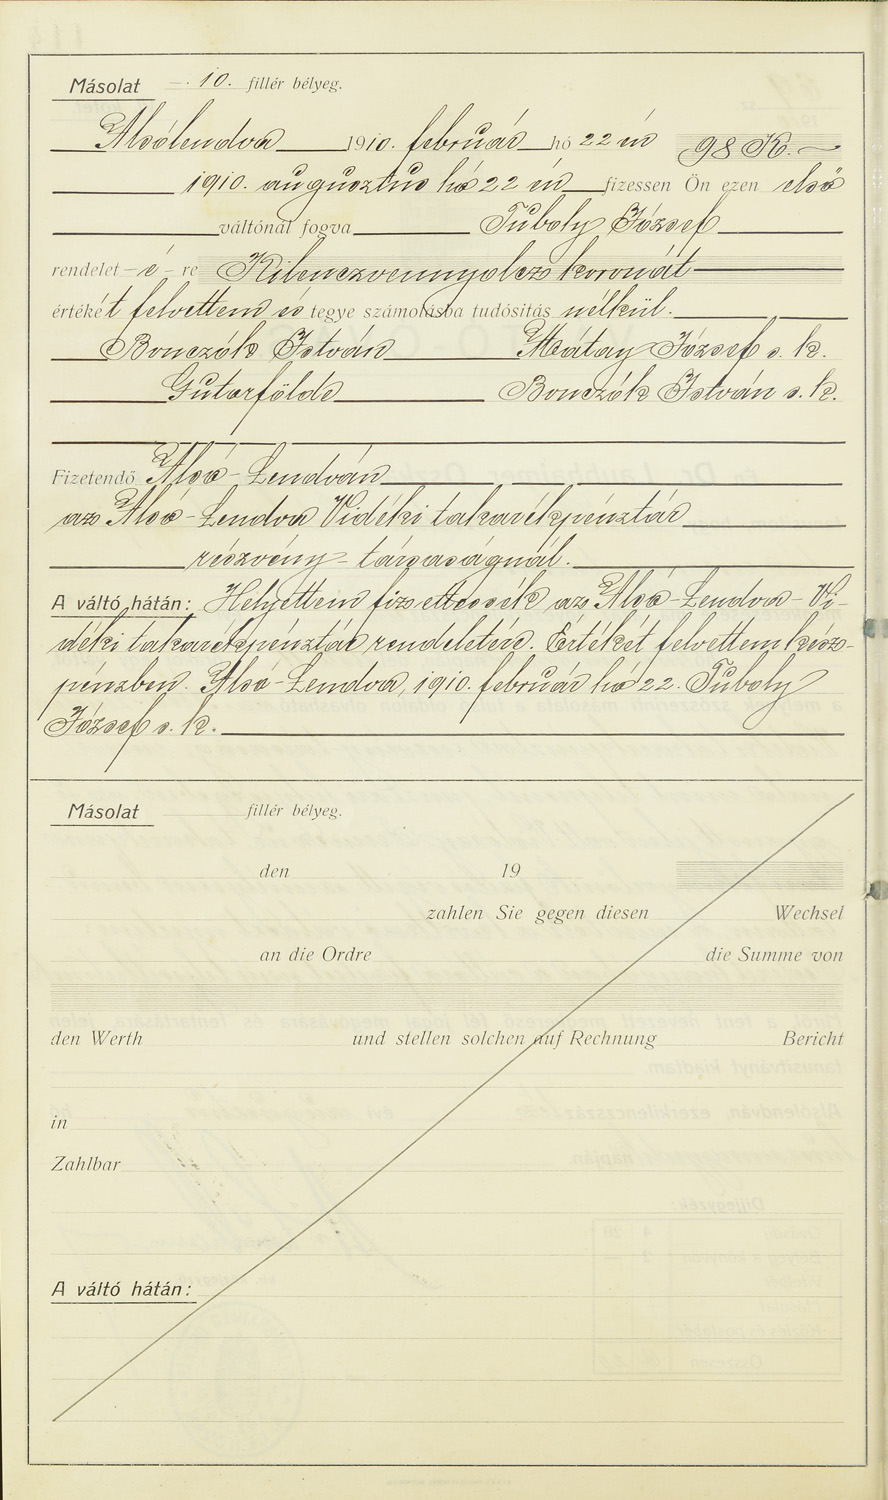 Másolat 10. fillér bélyeg.
Alsólendva 1910. február hó 22 én 98 K.
1910. augusztus hó 22 én fizessen Ön ezen első
váltónál fogva Tuboly József
rendelet-é-re Kilenczvennyolcz koronát
értékét felvettem és tegye számolásba tudósitás nélkül.
Bonczók István Mátay József s. k.
Gutorfölde Bonczók István s. k.
Fizetendő Alsó-Lendván
az Alsó-Lendva Vidéki takarékpénztár
részvény-társaságnál.
A váltó hátán: Helyettem fizettessék az Alsó-Lendva-Vi-
déki takarékpénztár rendeletére. Értékét felvettem kész-
pénzben. Alsó-Lendva, 1910. február hó 22. Tuboly
József s. k.
Másolat fillér bélyeg.
den 19
zahlen Sie gegen diesen Wechsel
an die Ordre die Summe von
den Werth und stellen solchen auf Rechnung Bericht
in
Zahlbar
A váltó hátán: